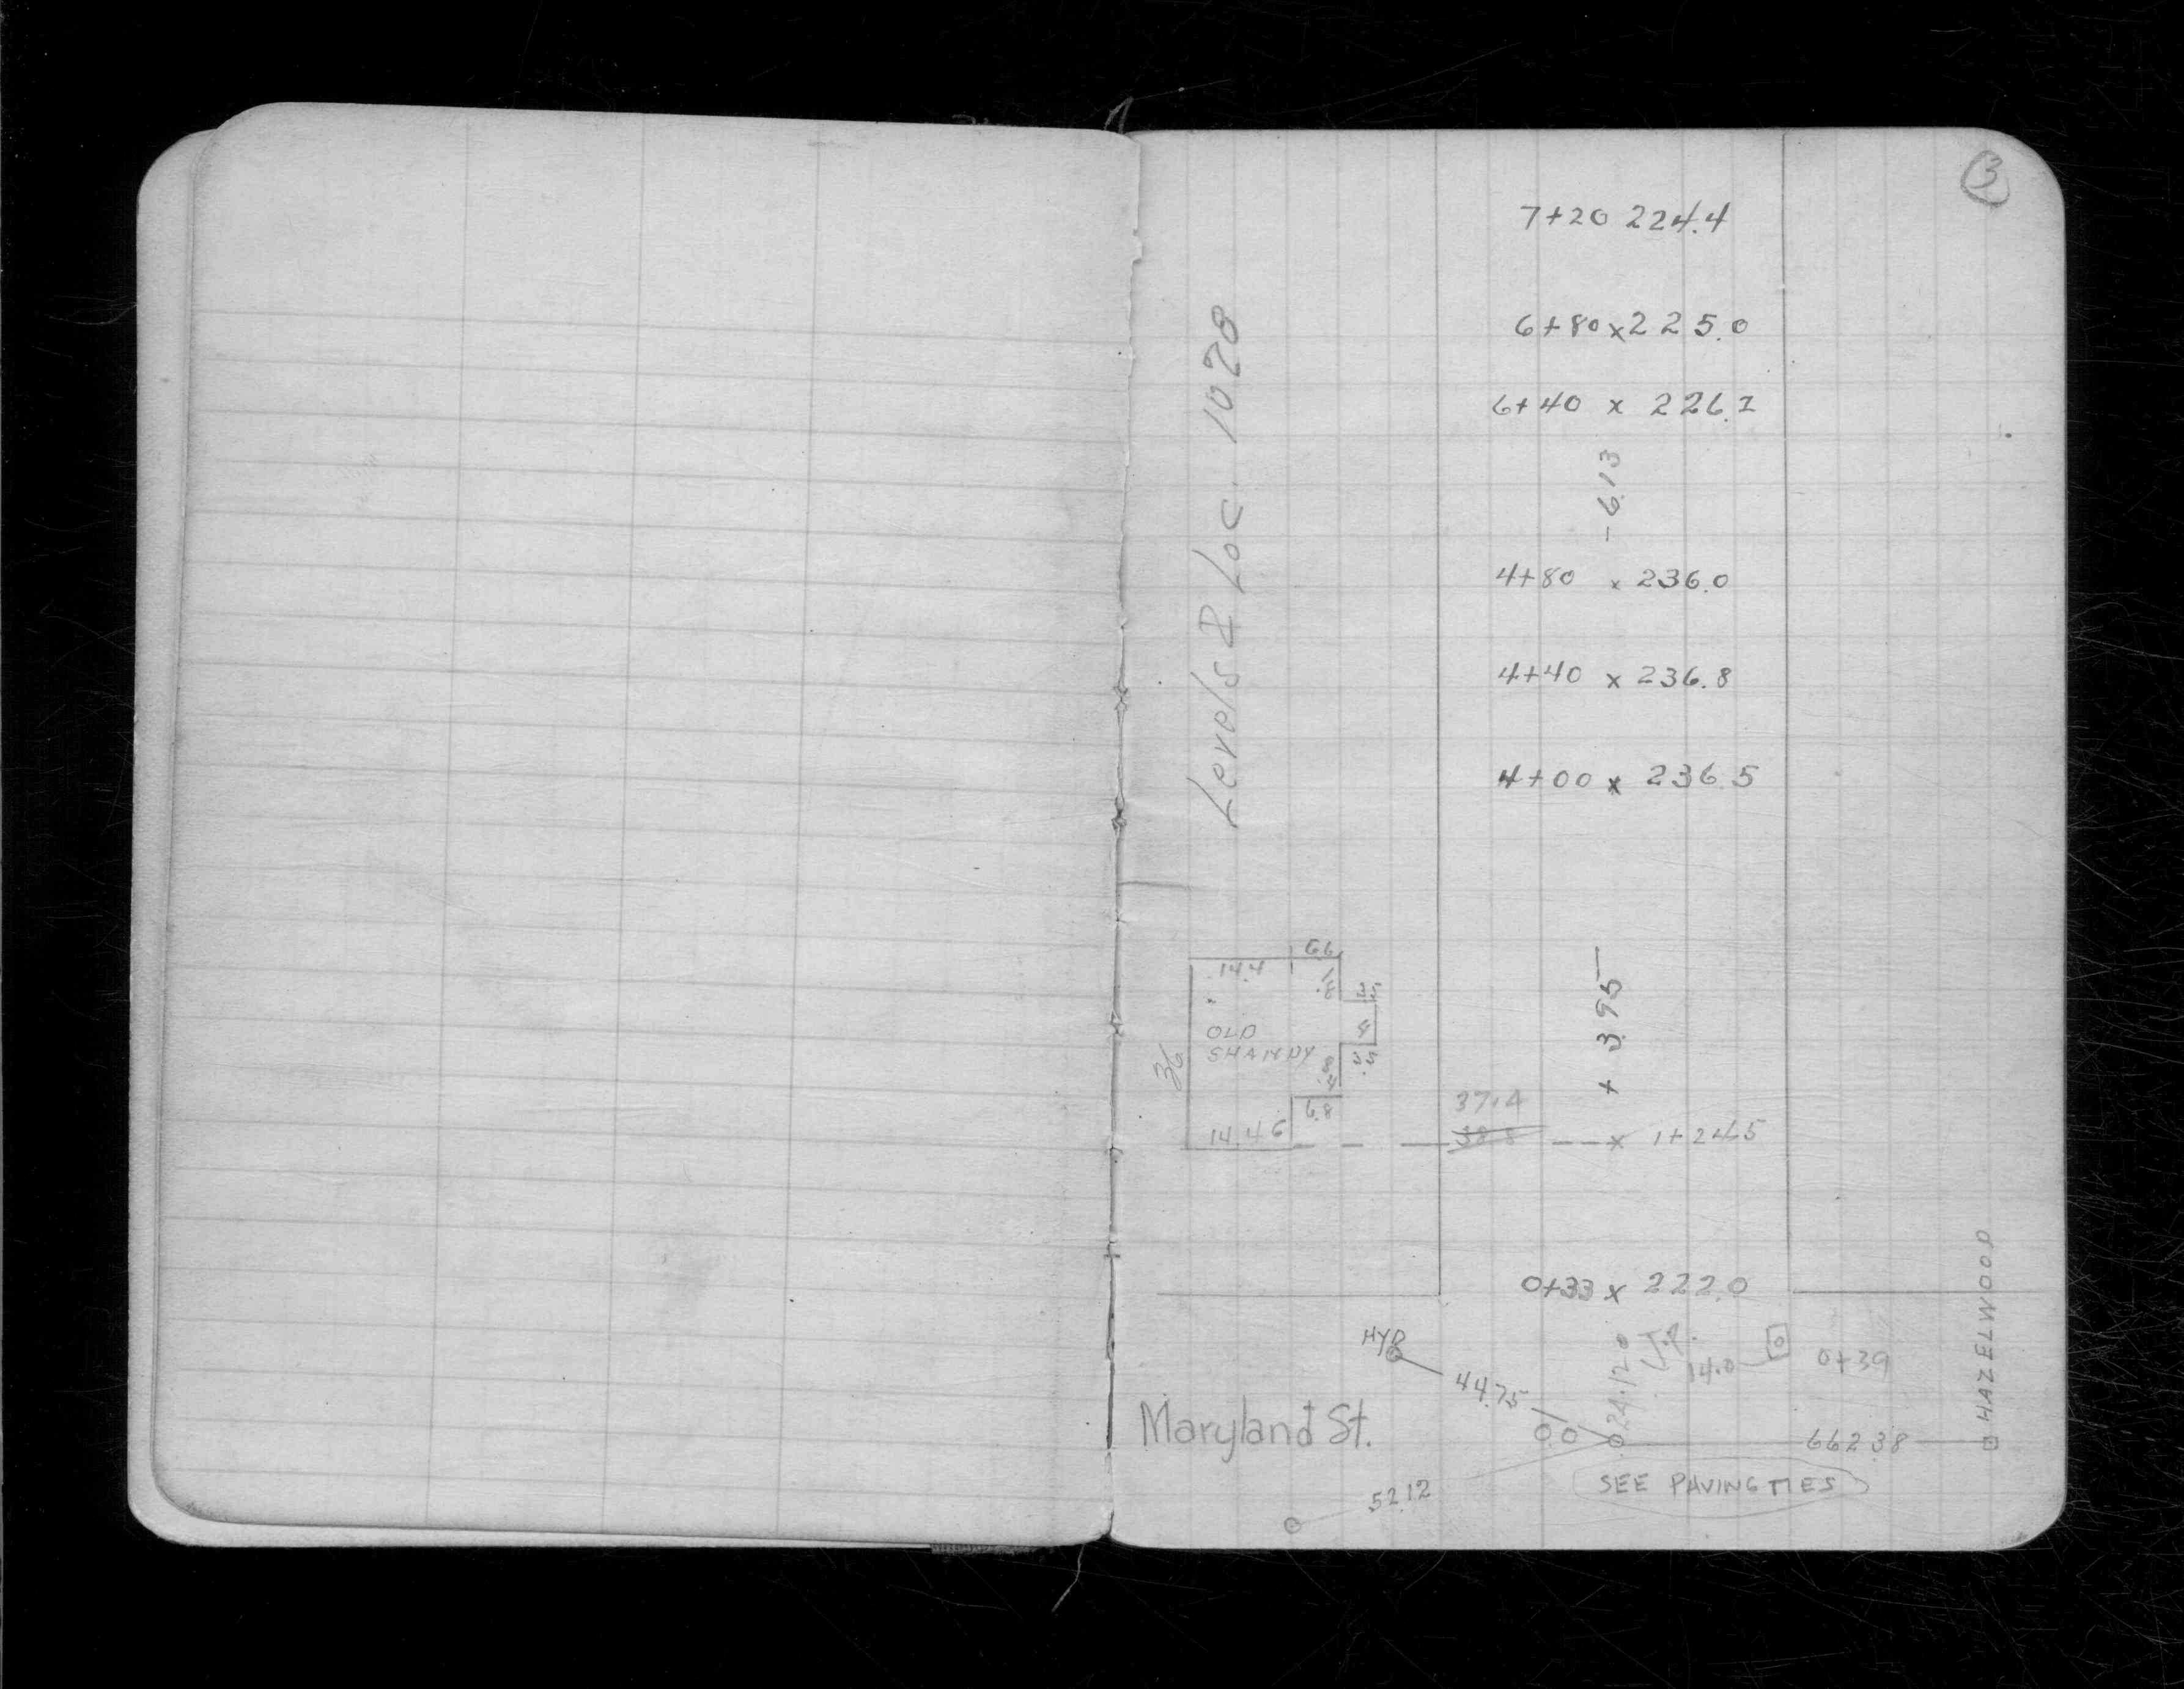 3
7+20 224.4
6+80 x 225.0
6+40 x 226.1
- 6.13
Levels & Loc. 1028
4+80 x 236.0
4+40 x 236.8
4+00 x 236.5
+ 3.95
14.4 6.6
OLD
36
6.8
14.46
37.4
38.8
x 1+24.5
0+33 x 222.0
HYD
44.75
24.120
14.0
0+39
HAZELWOOD
Maryland St.
662.38
SEE PAVING TIES
52.12